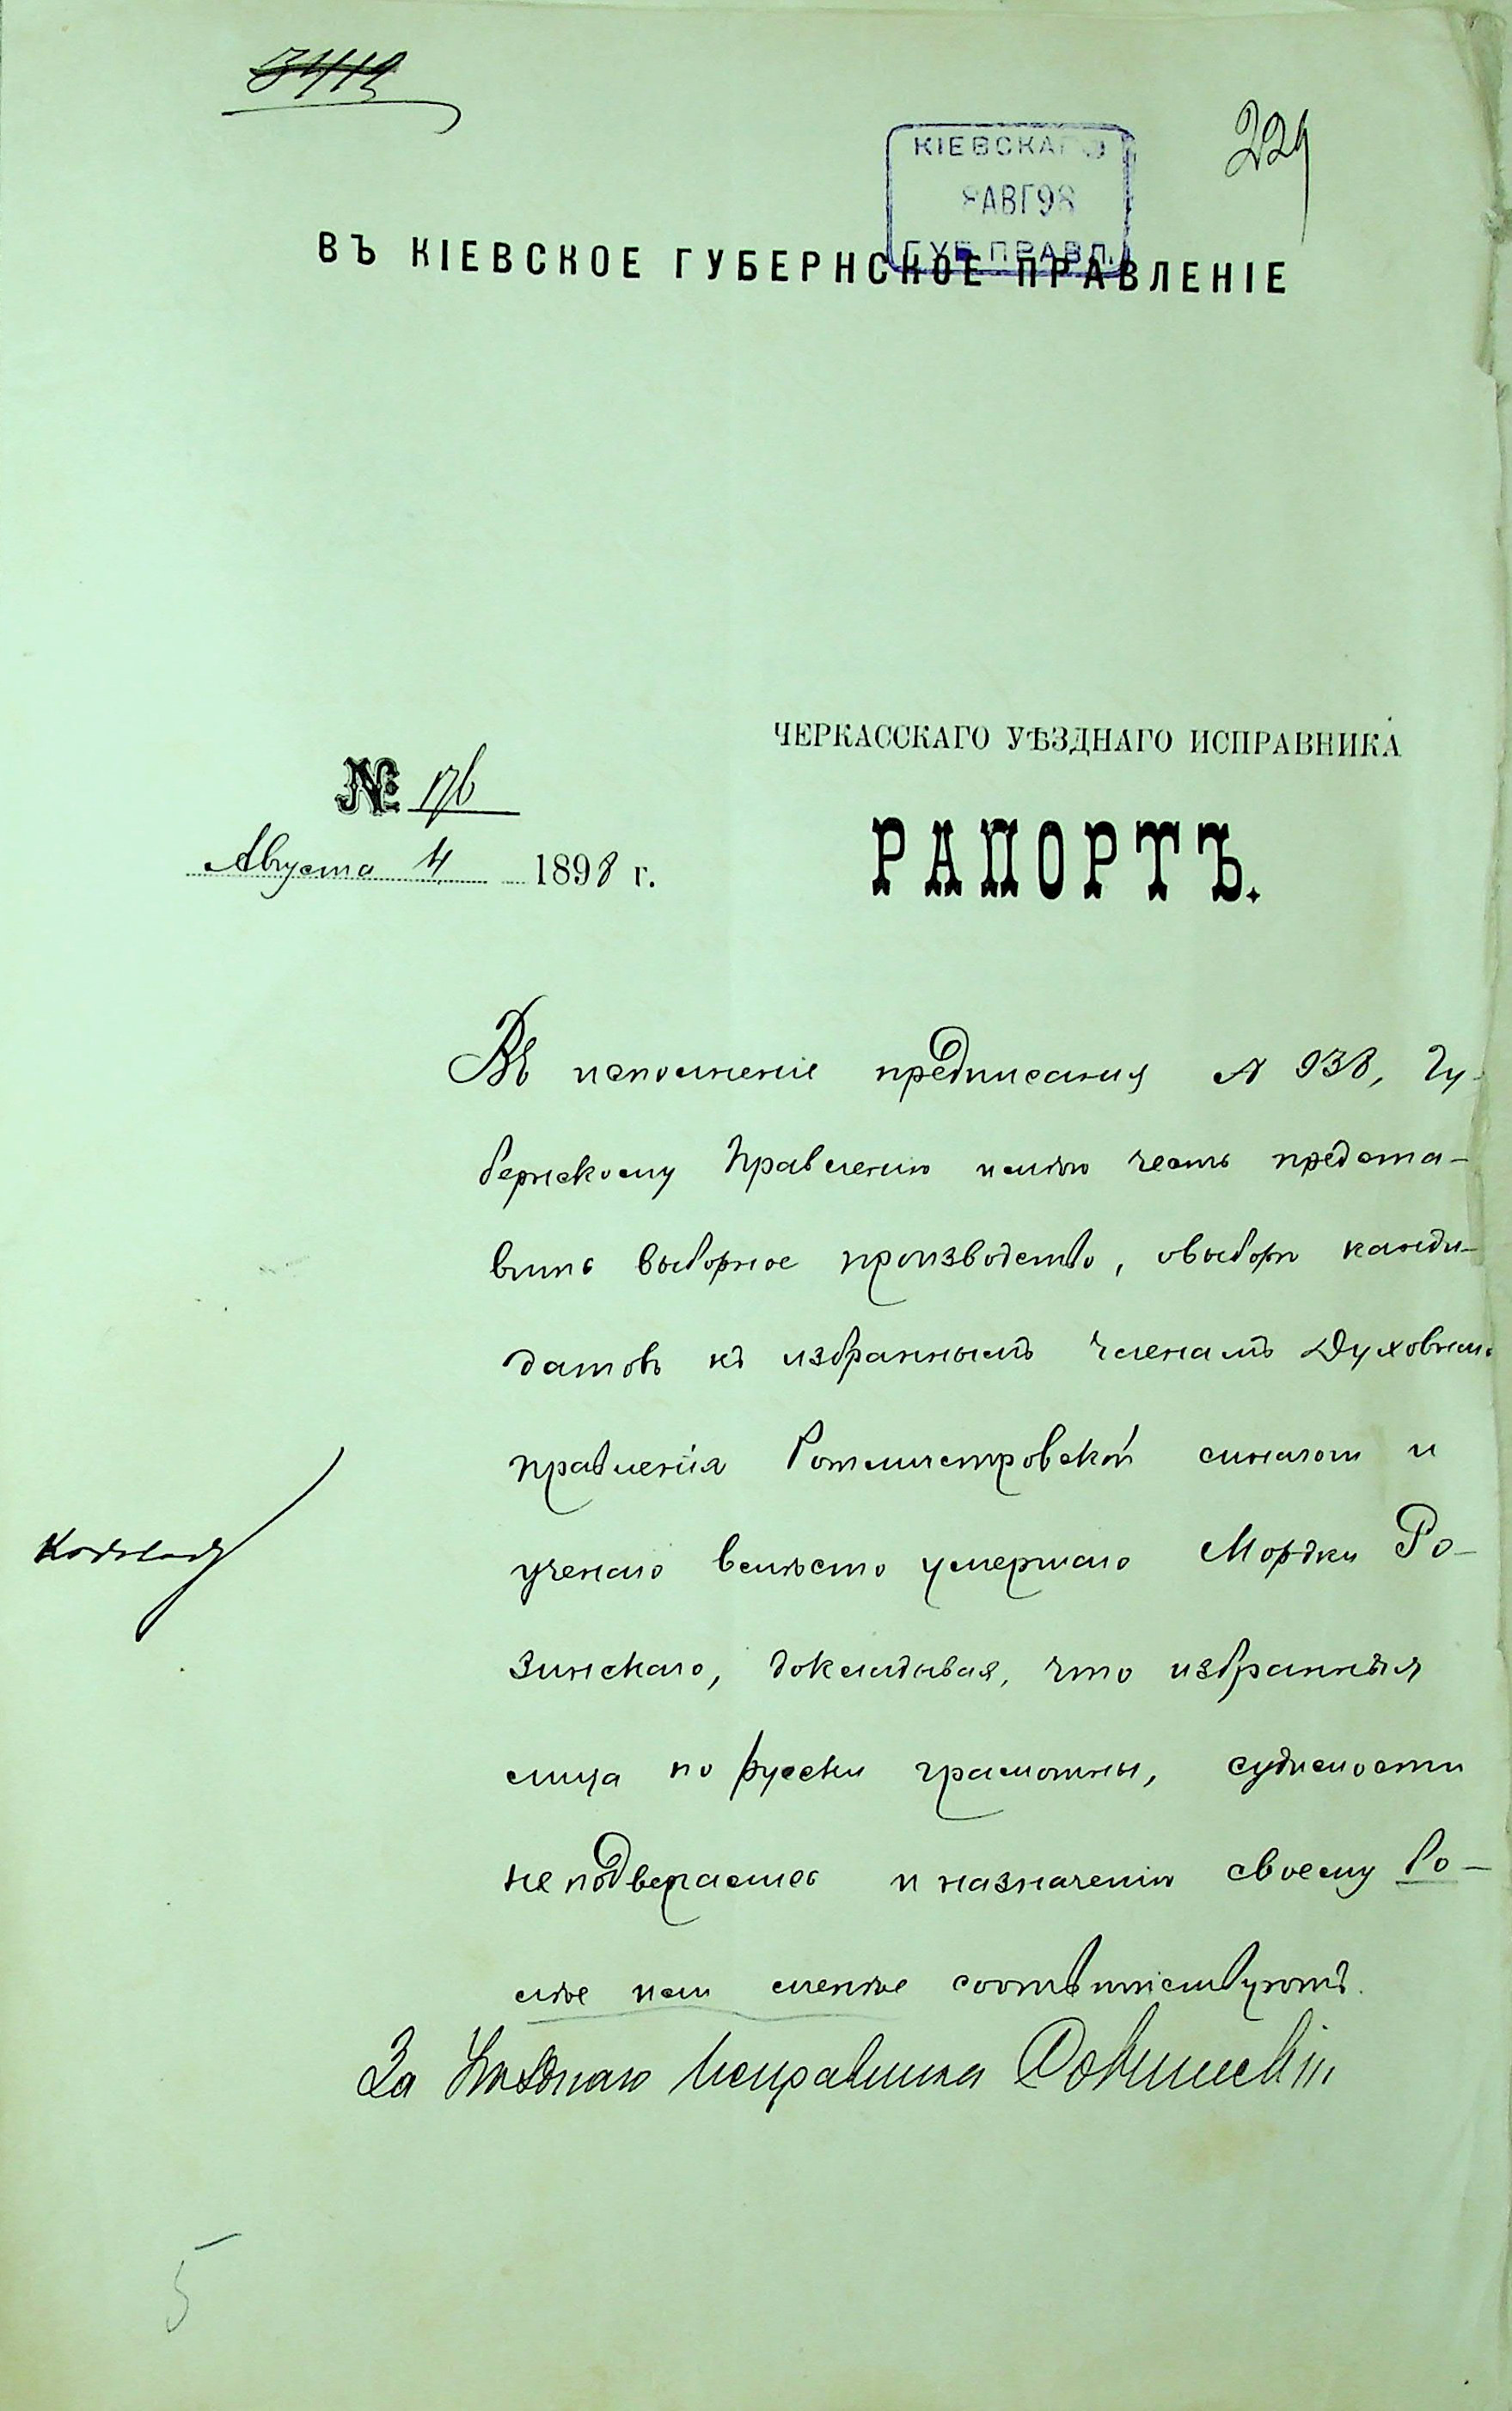 3419
229
КІЕВСКАГО
8 АВГ 98
ГУБ. ПРАВЛ.
ВЪ КІЕВСКОЕ ГУБЕРНСКОЕ ПРАВЛЕНІЕ
ЧЕРКАССКАГО УѢЗДНАГО ИСПРАВНИКА
№ 176
Августа 4 1898 г.
РАПОРТЪ.
Въ исполненіе предписанія № 938, Гу-
бернскому Правленію имѣю честь предста-
вить выборное производство, о выборѣ канди-
датовъ къ избраннымъ членамъ Духовнаго
правленія Ротмистровской синагоги и
ученаго вмѣсто умершаго Мордки Ро-
зинскаго, докладывая, что избранныя
лица по русски грамотны, судимости
не подвергались и назначенію своему
соотвѣтствуютъ.
За Уѣзднаго Исправника
5